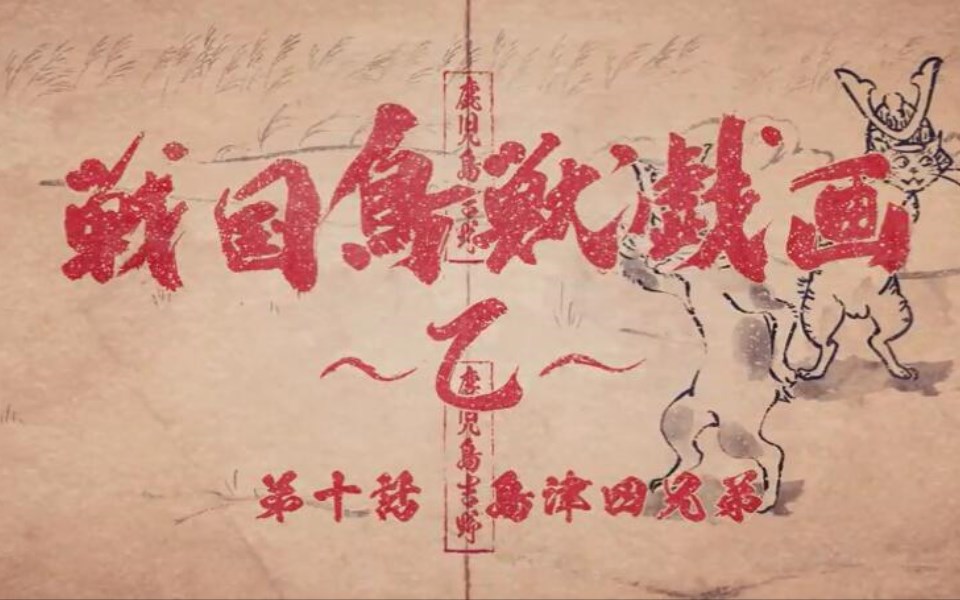 戦国鳥獣戯画
～乙～
第十話 島津四兄弟
鹿児島吉野
鹿児島吉野